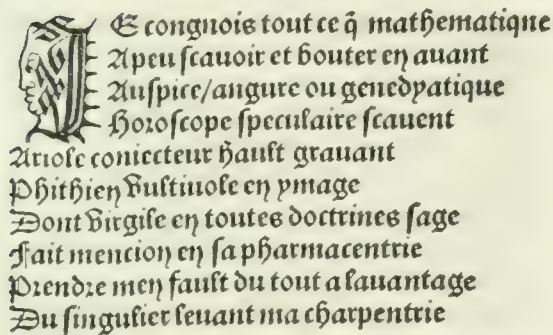 IE congnois tout ce q̃ mathematique
Apeu scauoir et bouter en auant
Auspice/angure ou genedyatique
Horoscope speculaire scauent
Ariole coniecteur hault grauant
Phithien vultiuole en ymage
Dont virgile en toutes doctrines sage
Fait mencion en sa pharmacentrie
Prendre men fault du tout a lauantage
Du singulier leuant ma charpentrie